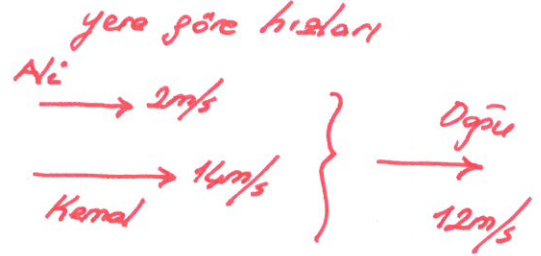 yere göre hızları
Ali
2m/s
14m/s
Kemal
Doğu
12m/s